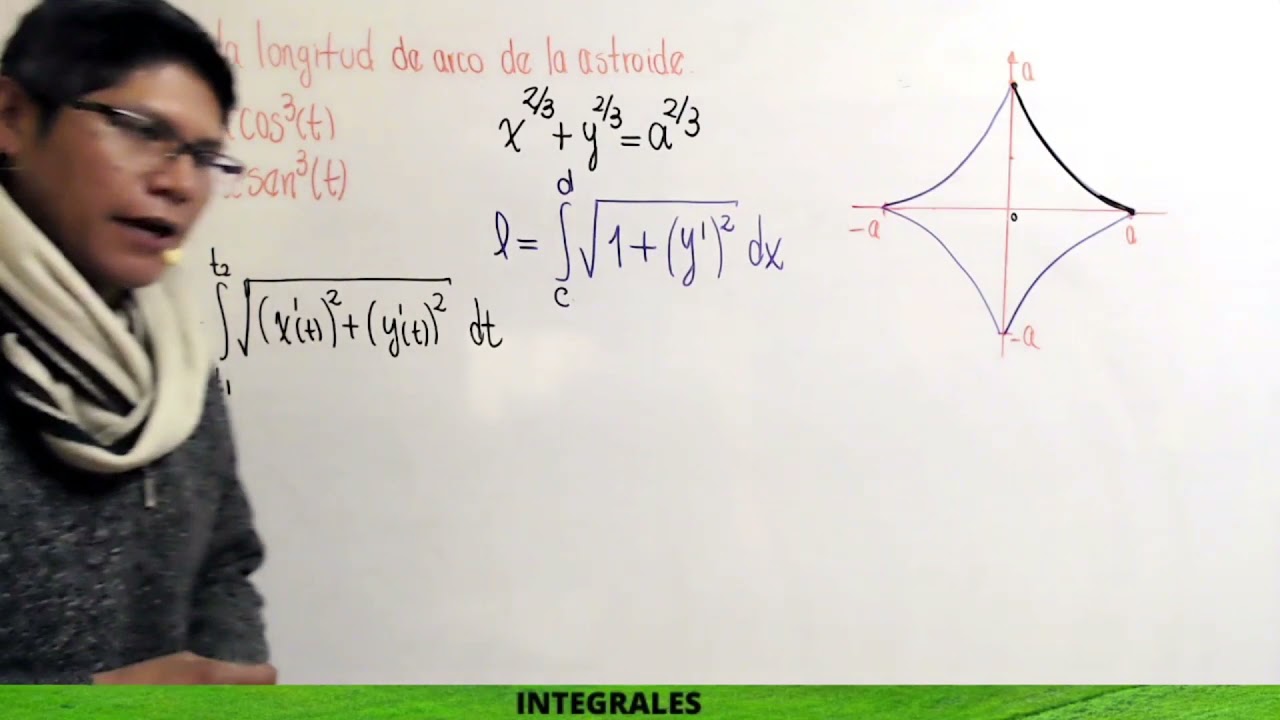 la longitud de arco de la astroide.
cos³(t)
sen³(t)
x^2/3 + y^2/3 = a^2/3
l = ∫ d c √1 + (y')² dx
t₂ ∫ √(x'(t))² + (y'(t))² dt
a
-a
o
a
-a
INTEGRALES